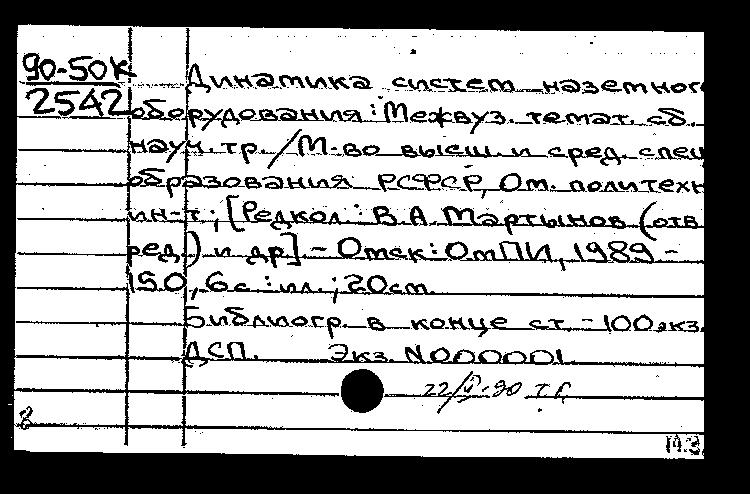 90-50К
2542
Динамика систем наземног
оборудования: Межвуз. темат. сб.
науч. тр. / М-во высш. и сред. спец
образования РСФСР, Ом. политехн
ин-т; [Редкол.: В.А. Мартынов (отв
ред.) и др]. - Омск: ОмПИ, 1989 -
150, 6 с.: ил.; 20 cm.
Библиогр. в конце ст. - 100 экз.
ДСП. Экз. N000001
22/V-90 Т.Г.
8
14.3.